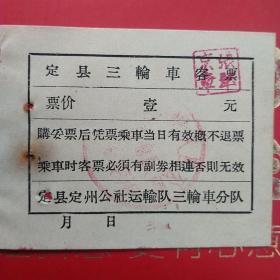 定县三輪車客票
票价 壹 元
購妥票后凭票乘車当日有效概不退票
乘車时客票必須有副劵相連否則无效
定县定州公社运輸队三輪車分队
月 日